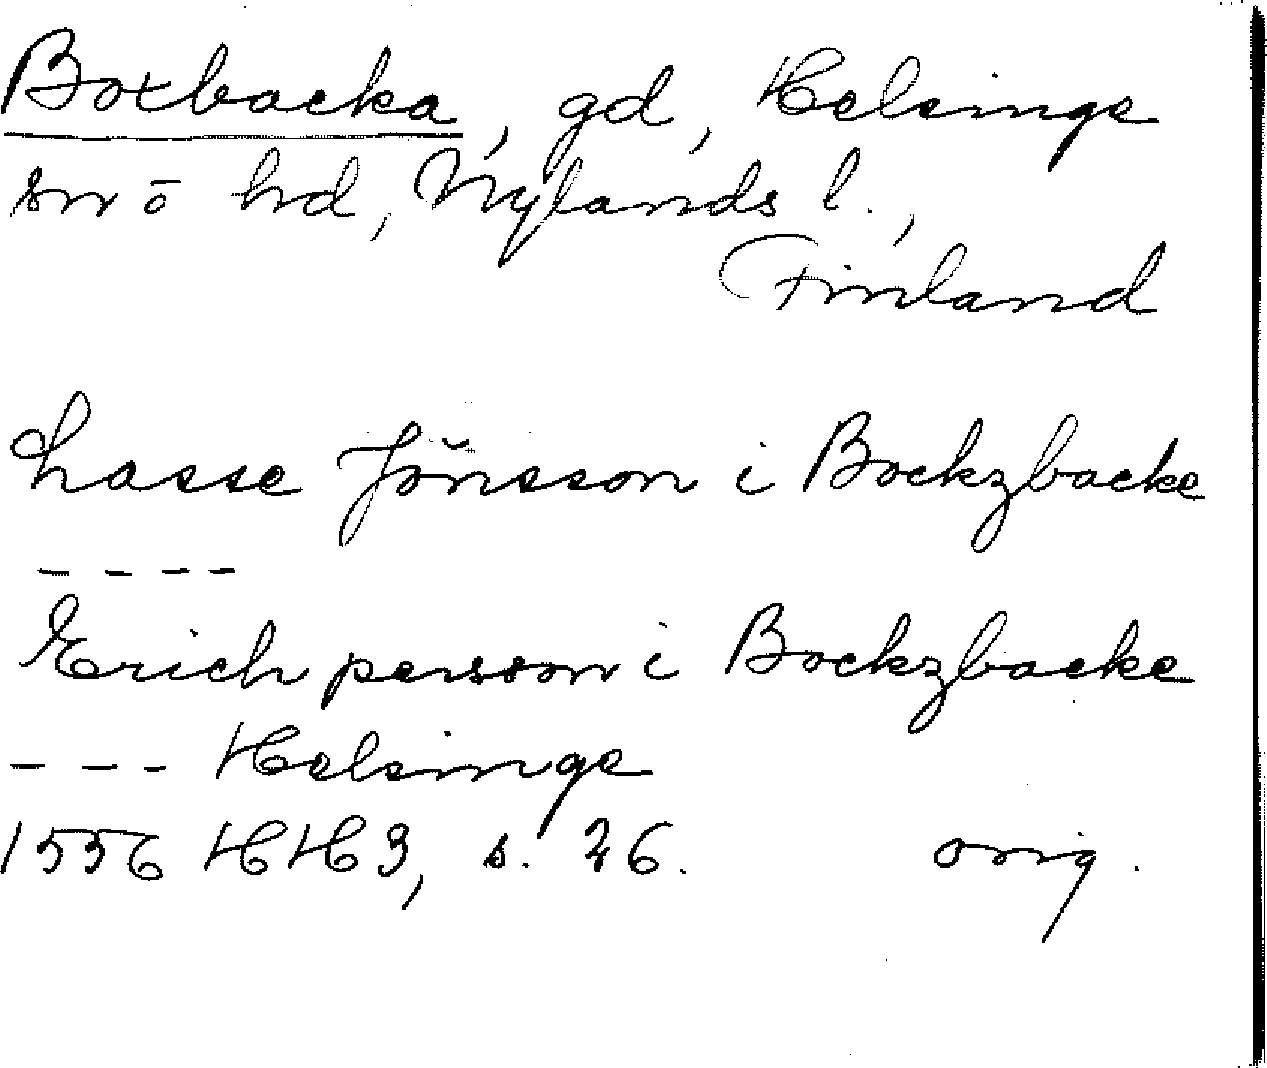 Boxbacka, gd, Helsinge
sn o̅ hd, Nylands l.,
Finland
Lasse Jönsson i Bockzbacke
- - - -
Erich persson i Bockzbacke
- - - Helsinge
1556 HH3, s. 26. orig.